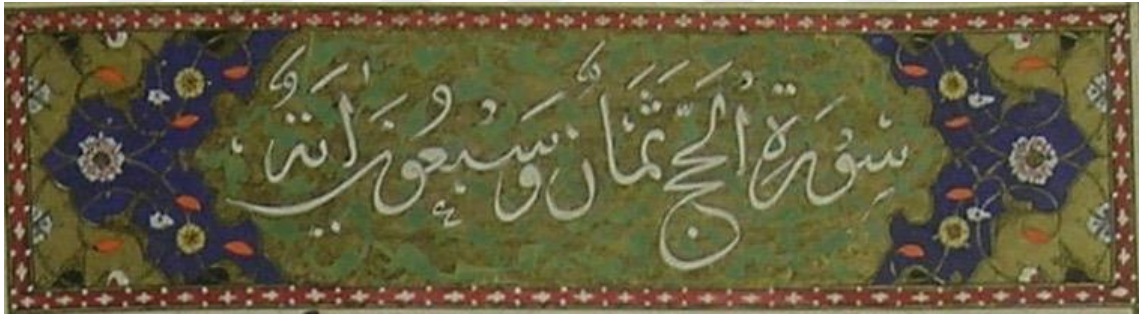 سورة الحج ثمان وسبعون آية